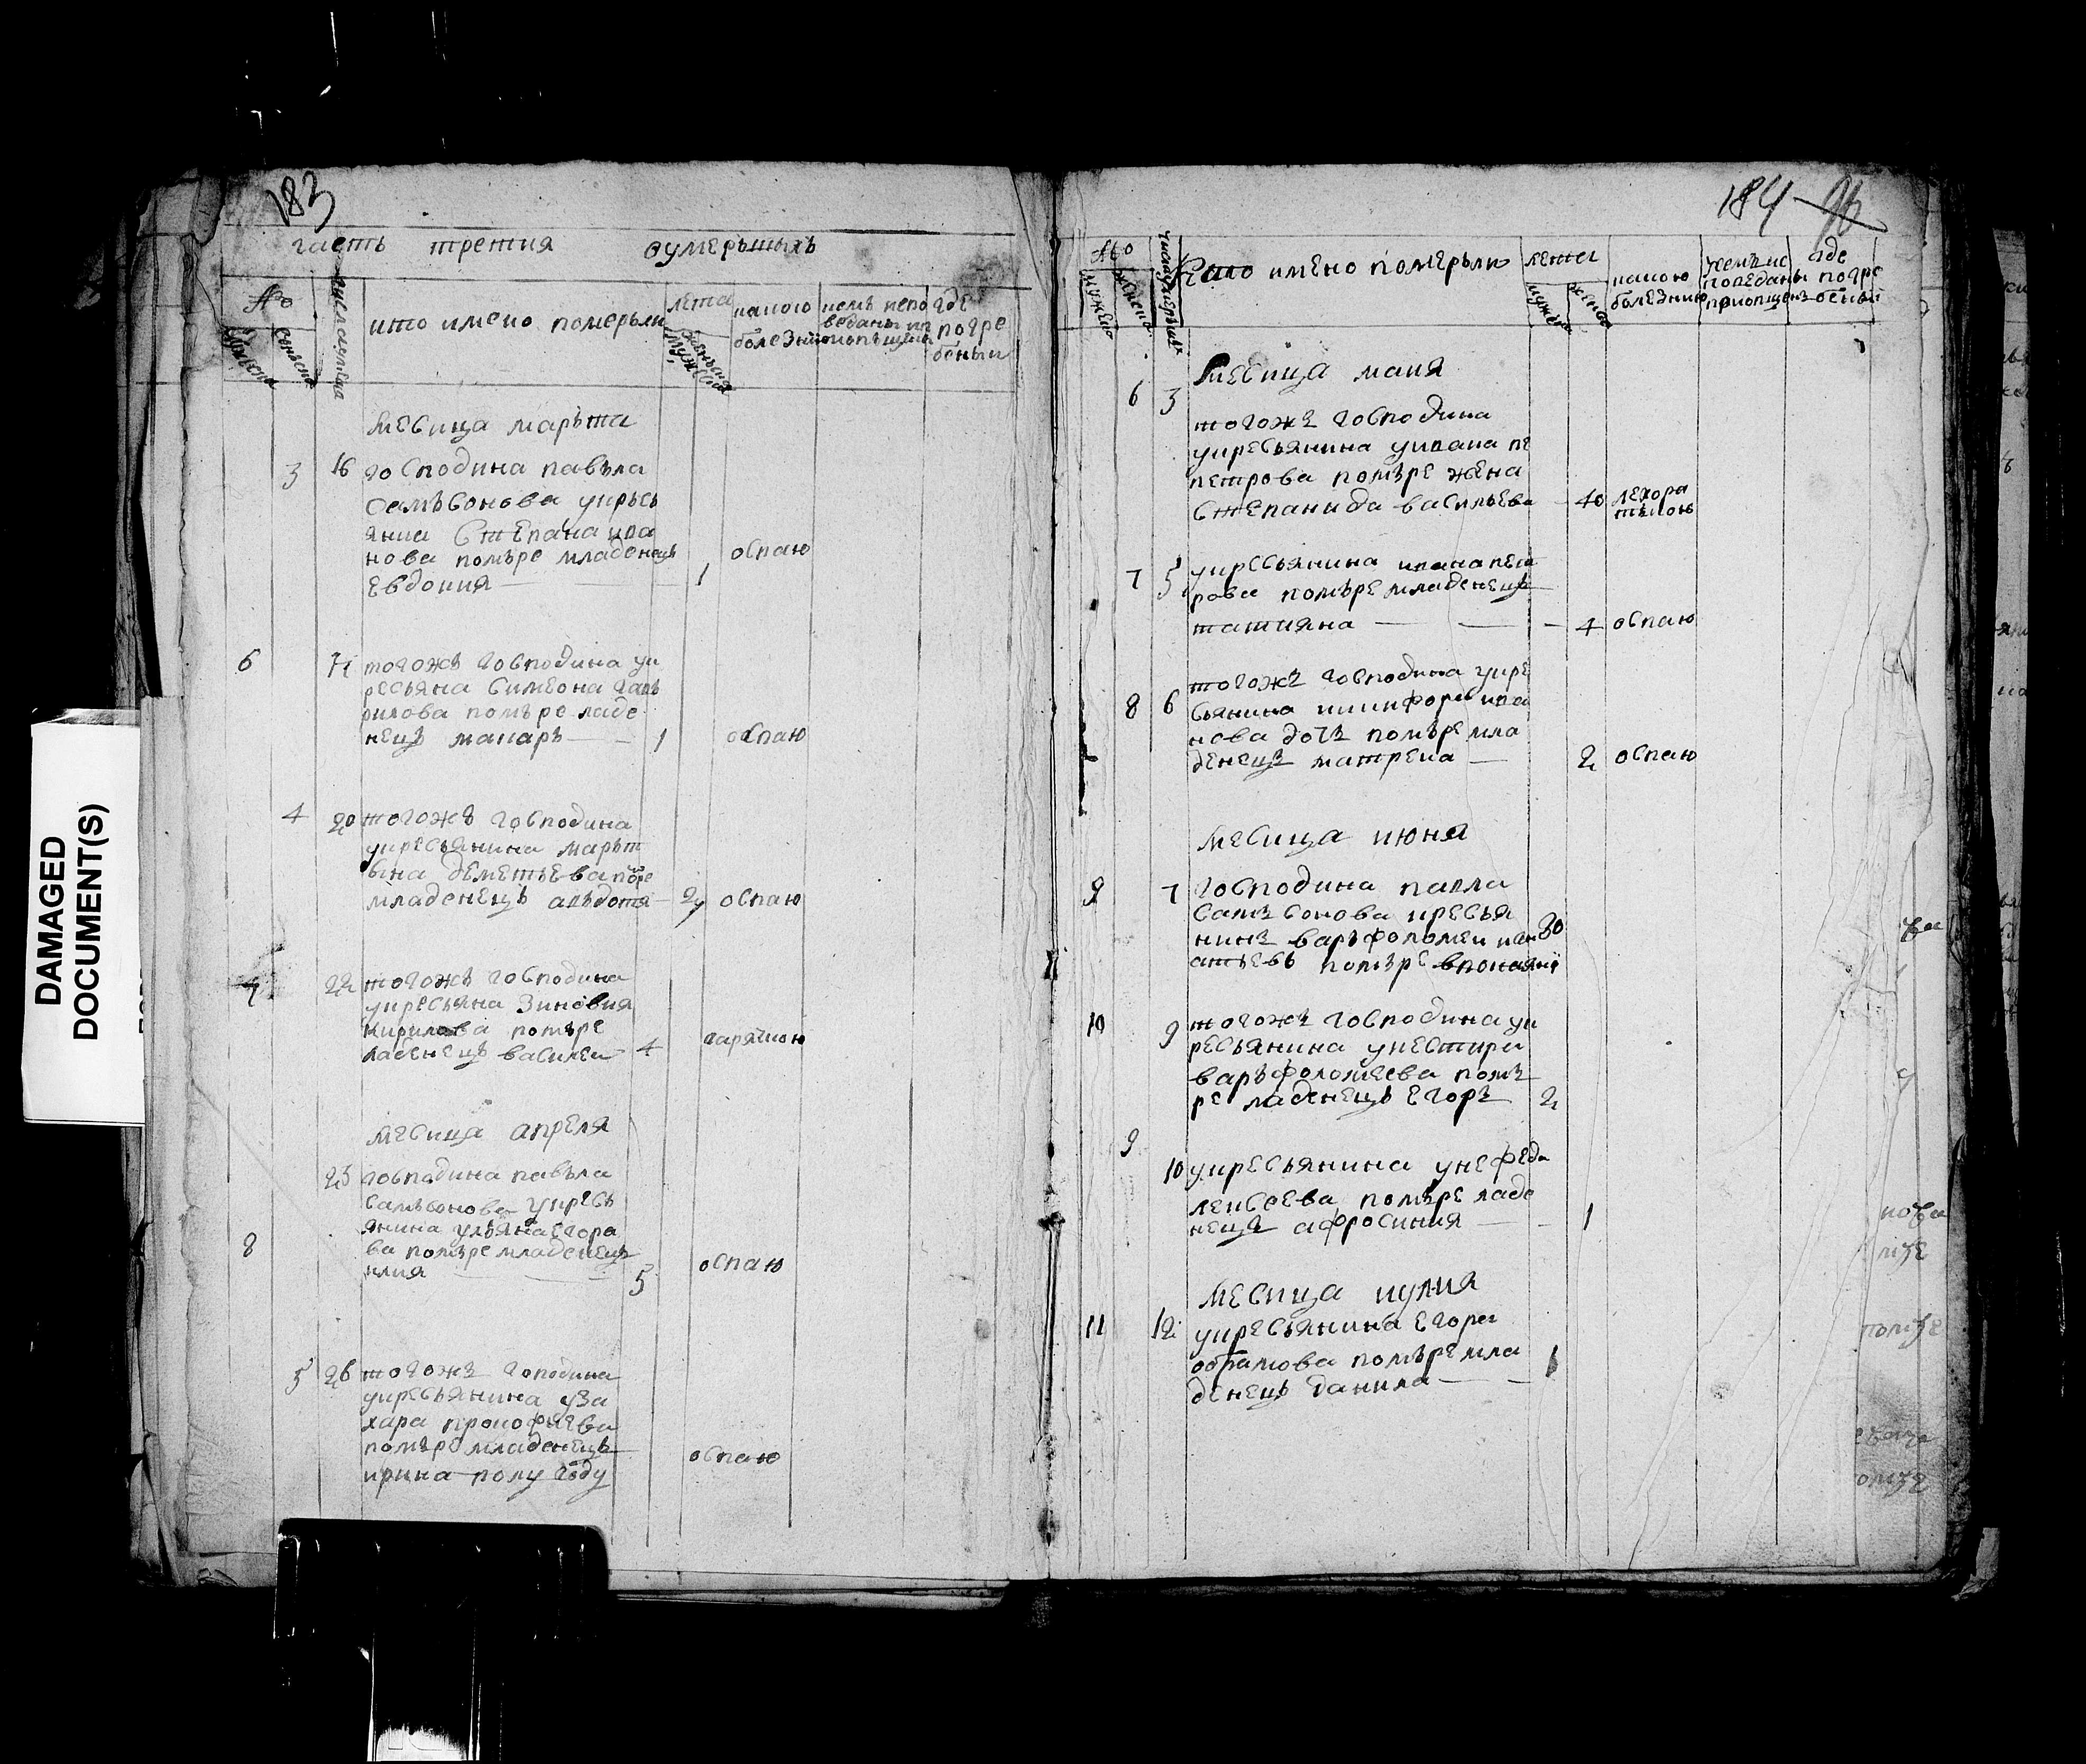 183
часть третия оумерьшыхъ
№
кто имено померьли
лета
какою болезни
кемъ испо веданы ип риопъщены
где погре бены
месица марьта
3 16 господина павъла
самъсонова укрьсь
янина Степана ива
нова помъре младенецъ
евдокия — 1 оспаю
6 17 тогожъ господина ук
ресьяна Симеона гавъ
рилова помъре ладе
нецъ макаръ — 1 оспаю
4 20 тогожъ господина
укресьянина марьт
ына деметьева помре
младенецъ авъдотя — 2 оспаю
7 22 тогожъ господина
укресьяна Зиновия
кирилова помъре
ладенецъ василеи 4 гарячкою
месица апреля
23 господина павъла
самъсонова укресь
янина ульяна егора
8 ва помъре младенецъ
илия 5 оспаю
5 26 тогожъ гоподина
укресьянина уза
хара прокофиева
помъре младенецъ
ирина полу году оспаю
DAMAGED
DOCUMENT(S)
184
№
Като имено померьли
лета
какою болезнию
кемъ ис поведаны приопщен
где погре бены
месица маия
6 3
тогожъ господина
укресьянина уивана пе
петрова помъре жена
Степанида васильева 40 лехора тъкою
7 5 укресьянина ивана пет
рова помъре младенецъ
татияна — 4 оспаю
тогожъ господина укре
8 6 сьянина никифора ива
нова дочъ помъре мла
денецъ матрена — 2 оспаю
месица июня
9 7 господина павла
самъсонова кресья
нинъ варъфоломеи иг
атьевъ помъре 80
10 9 тогожъ господина ук
ресьянина унестира
варъфоломеева помъ
ре ладенецъ егоръ 2
9
10 укресьянина унефеда
леисеева помъре ладе
нецъ афросиния — 1
месица иулия
11 12 укресьянина егора
обрамова помъре мла
денецъ данила — 1